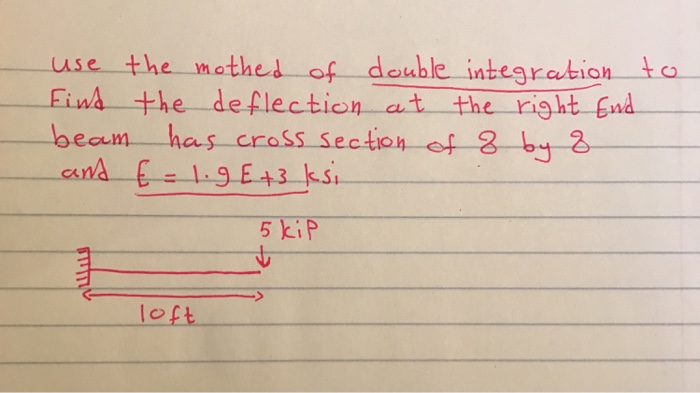 use the mothed of double integration to
Find the deflection at the right End
beam has cross section of 8 by 8
and E = 1.9 E+3 ksi
5 kip
10ft